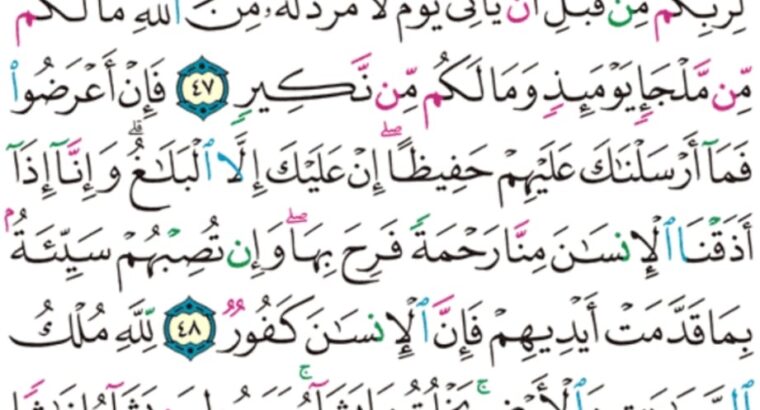 لِرَبِّكُم مِّن قَبْلِ أَن يَأْتِيَ يَوْمٌ لَّا مَرَدَّ لَهُۥ مِنَ ٱللَّهِ مَا لَكُم
مِّن مَّلْجَإٍ يَوْمَئِذٍ وَمَا لَكُم مِّن نَّكِيرٍ ٤٧ فَإِنْ أَعْرَضُوا۟
فَمَآ أَرْسَلْنَٰكَ عَلَيْهِمْ حَفِيظًا ۖ إِنْ عَلَيْكَ إِلَّا ٱلْبَلَٰغُ ۗ وَإِنَّآ إِذَآ
أَذَقْنَا ٱلْإِنسَٰنَ مِنَّا رَحْمَةً فَرِحَ بِهَا ۖ وَإِن تُصِبْهُمْ سَيِّئَةٌۢ
بِمَا قَدَّمَتْ أَيْدِيهِمْ فَإِنَّ ٱلْإِنسَٰنَ كَفُورٌ ٤٨ لِّلَّهِ مُلْكُ